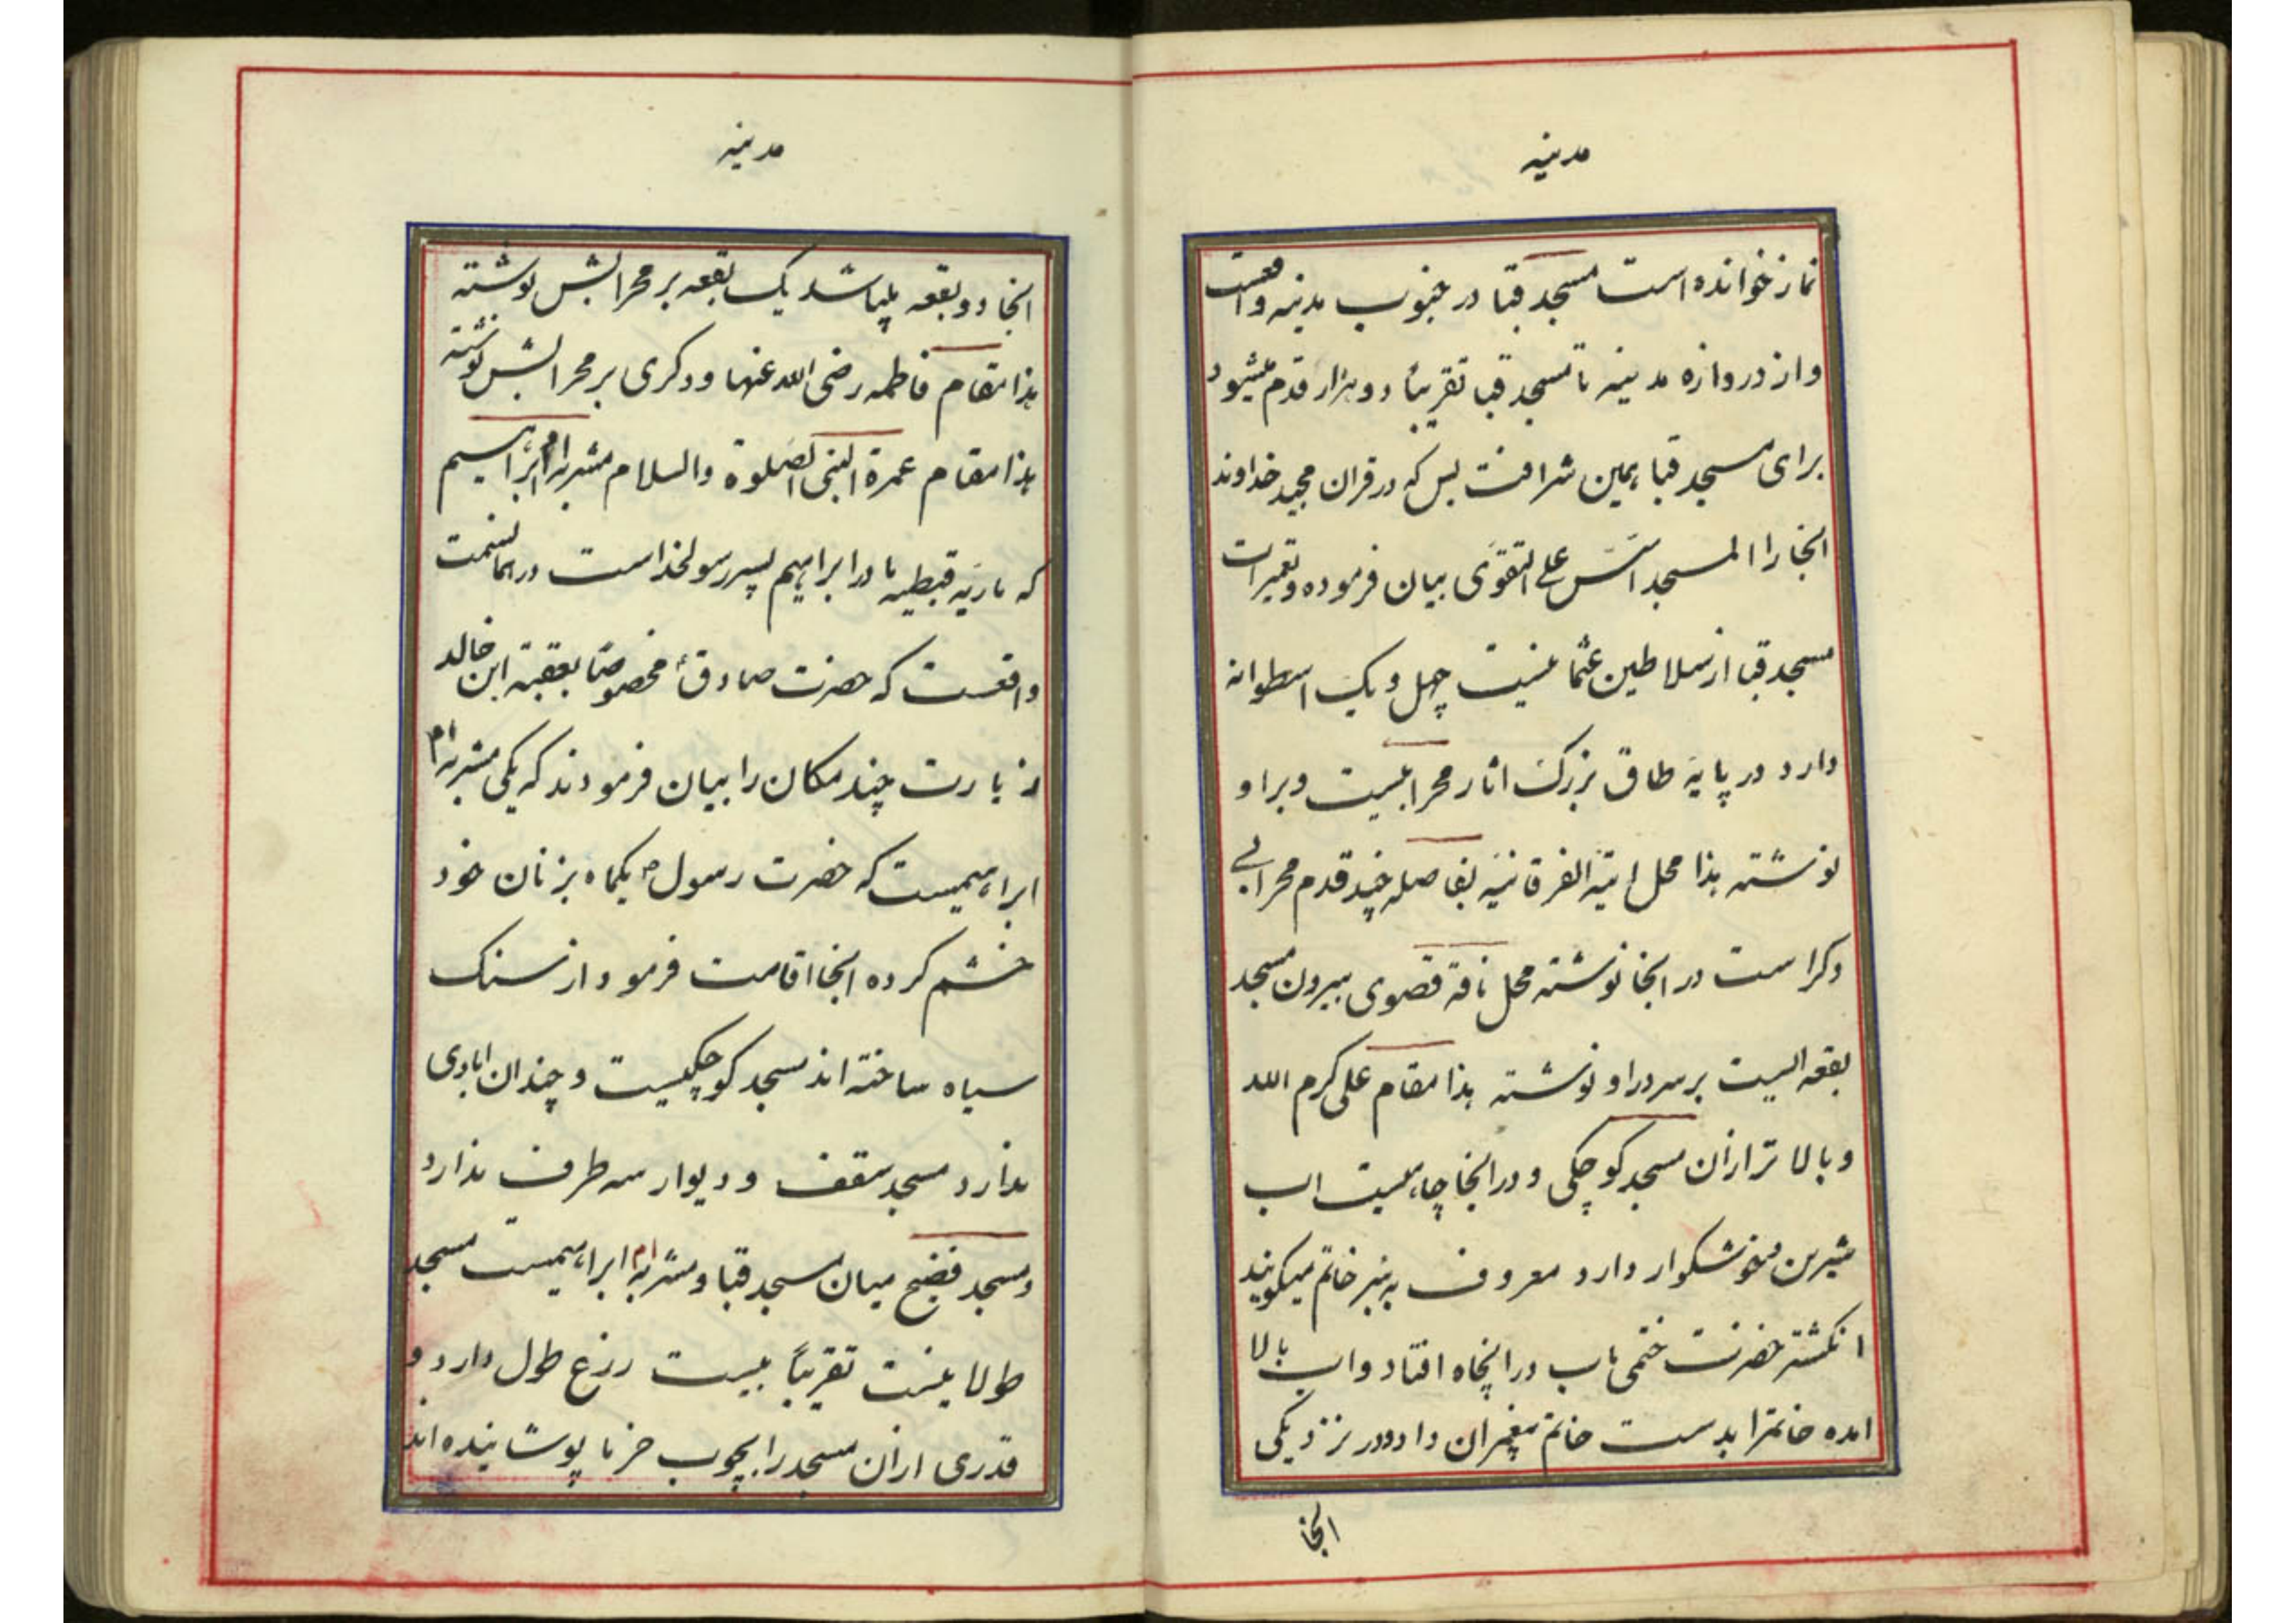 مدینه
نماز خوانده است مسجد قبا در جنوب مدینه واقعست
و از دروازه مدینه تا مسجد قبا تقریباً دو هزار قدم میشود
برای مسجد قبا همین شرافت بس که در قران مجید خداوند
انجا را المسجد اسّس علی التقوی بیان فرموده و تعمیرات
مسجد قبا از سلاطین عثمانیست چهل و یک اسطوانه
دارد در پایۀ طاق بزرک اثار محرابیست و بر او
نوشته هذا محل ایتۀ الفرقانیۀ بفاصله چند قدم محرابی
دکر است در انجا نوشته محل ناقۀ قصوی بیرون مسجد
بقعه ایست بر سر در او نوشته هذا مقام علی کرم الله
و بالا تر از ان مسجد کوچکی و در انجا چاهیست اب
شیرین خوشکوار دارد معروف به بئر خاتم میکویند
انکشتر حضرت ختمی ماب در انچاه افتاد و اب بالا
امده خاتمرا بدست خاتم پیغمبران داد و در نزدیکی
انجا
مدینه
انجا دو بقعه میباشد یک بقعه بر محرابش نوشته
هذا مقام فاطمه رضی الله عنها و دکری بر محرابش نوشته
هذا مقام عمرة النبی الصلوة والسلام مشربه ام ابراهیم
که ماریۀ قبطیه مادر ابراهیم پسر رسولخداست در همانسمت
واقعست که حضرت صادق ع مخصوصاً بعقبة ابن خالد
زیارت چند مکان را بیان فرمودند که یکی مشربه ام
ابراهیمست که حضرت رسول ص یکماه بزنان خود
خشم کرده انجا اقامت فرمود از سنک
سیاه ساخته اند مسجد کوچکیست و چندان ابادی
ندارد مسجد سقف و دیوار سه طرف ندارد
و مسجد فضیح میان مسجد قبا و مشربه ام ابراهیمست مسجد
طولانیست تقریباً بیست زرع طول دارد و
قدری از ان مسجد را بچوب خرما پوشانیده اند